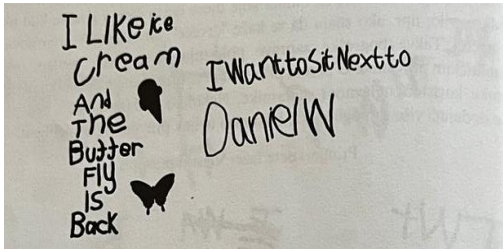 I LIKe ice
Cream
And
The
Butter
Fly
Is
Back
I Want to Sit Next to
Daniel W